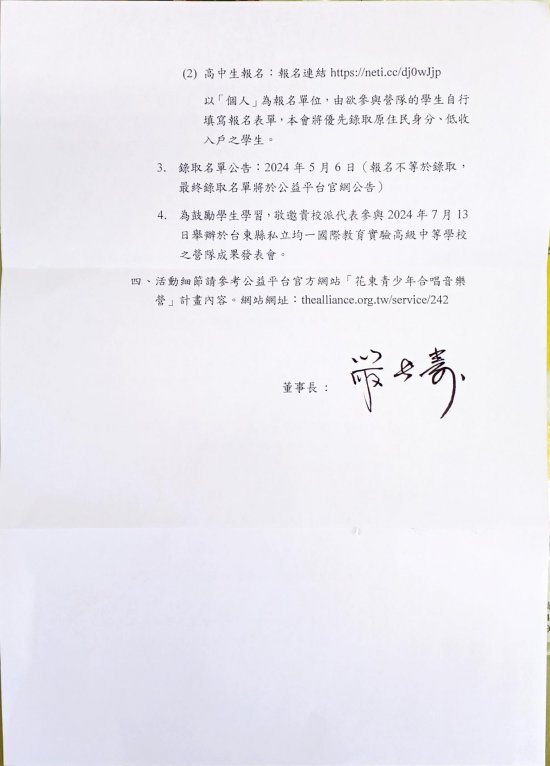 (2) 高中生報名：報名連結 https://neti.cc/dj0wJjp
以「個人」為報名單位，由欲參與營隊的學生自行
填寫報名表單，本會將優先錄取原住民身分、低收
入戶之學生。
3. 錄取名單公告：2024 年 5 月 6 日（報名不等於錄取，
最終錄取名單將於公益平台官網公告）
4. 為鼓勵學生學習，敬邀貴校派代表參與 2024 年 7 月 13
日舉辦於台東縣私立均一國際教育實驗高級中等學校
之營隊成果發表會。
四、活動細節請參考公益平台官方網站「花東青少年合唱音樂
營」計畫內容。網站網址：thealliance.org.tw/service/242
董事長： 嚴長壽